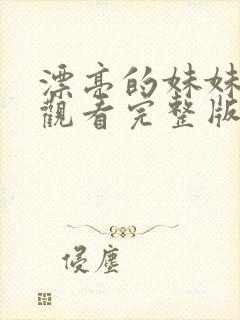 漂亮的妹妹
觀看完整版
侵塵